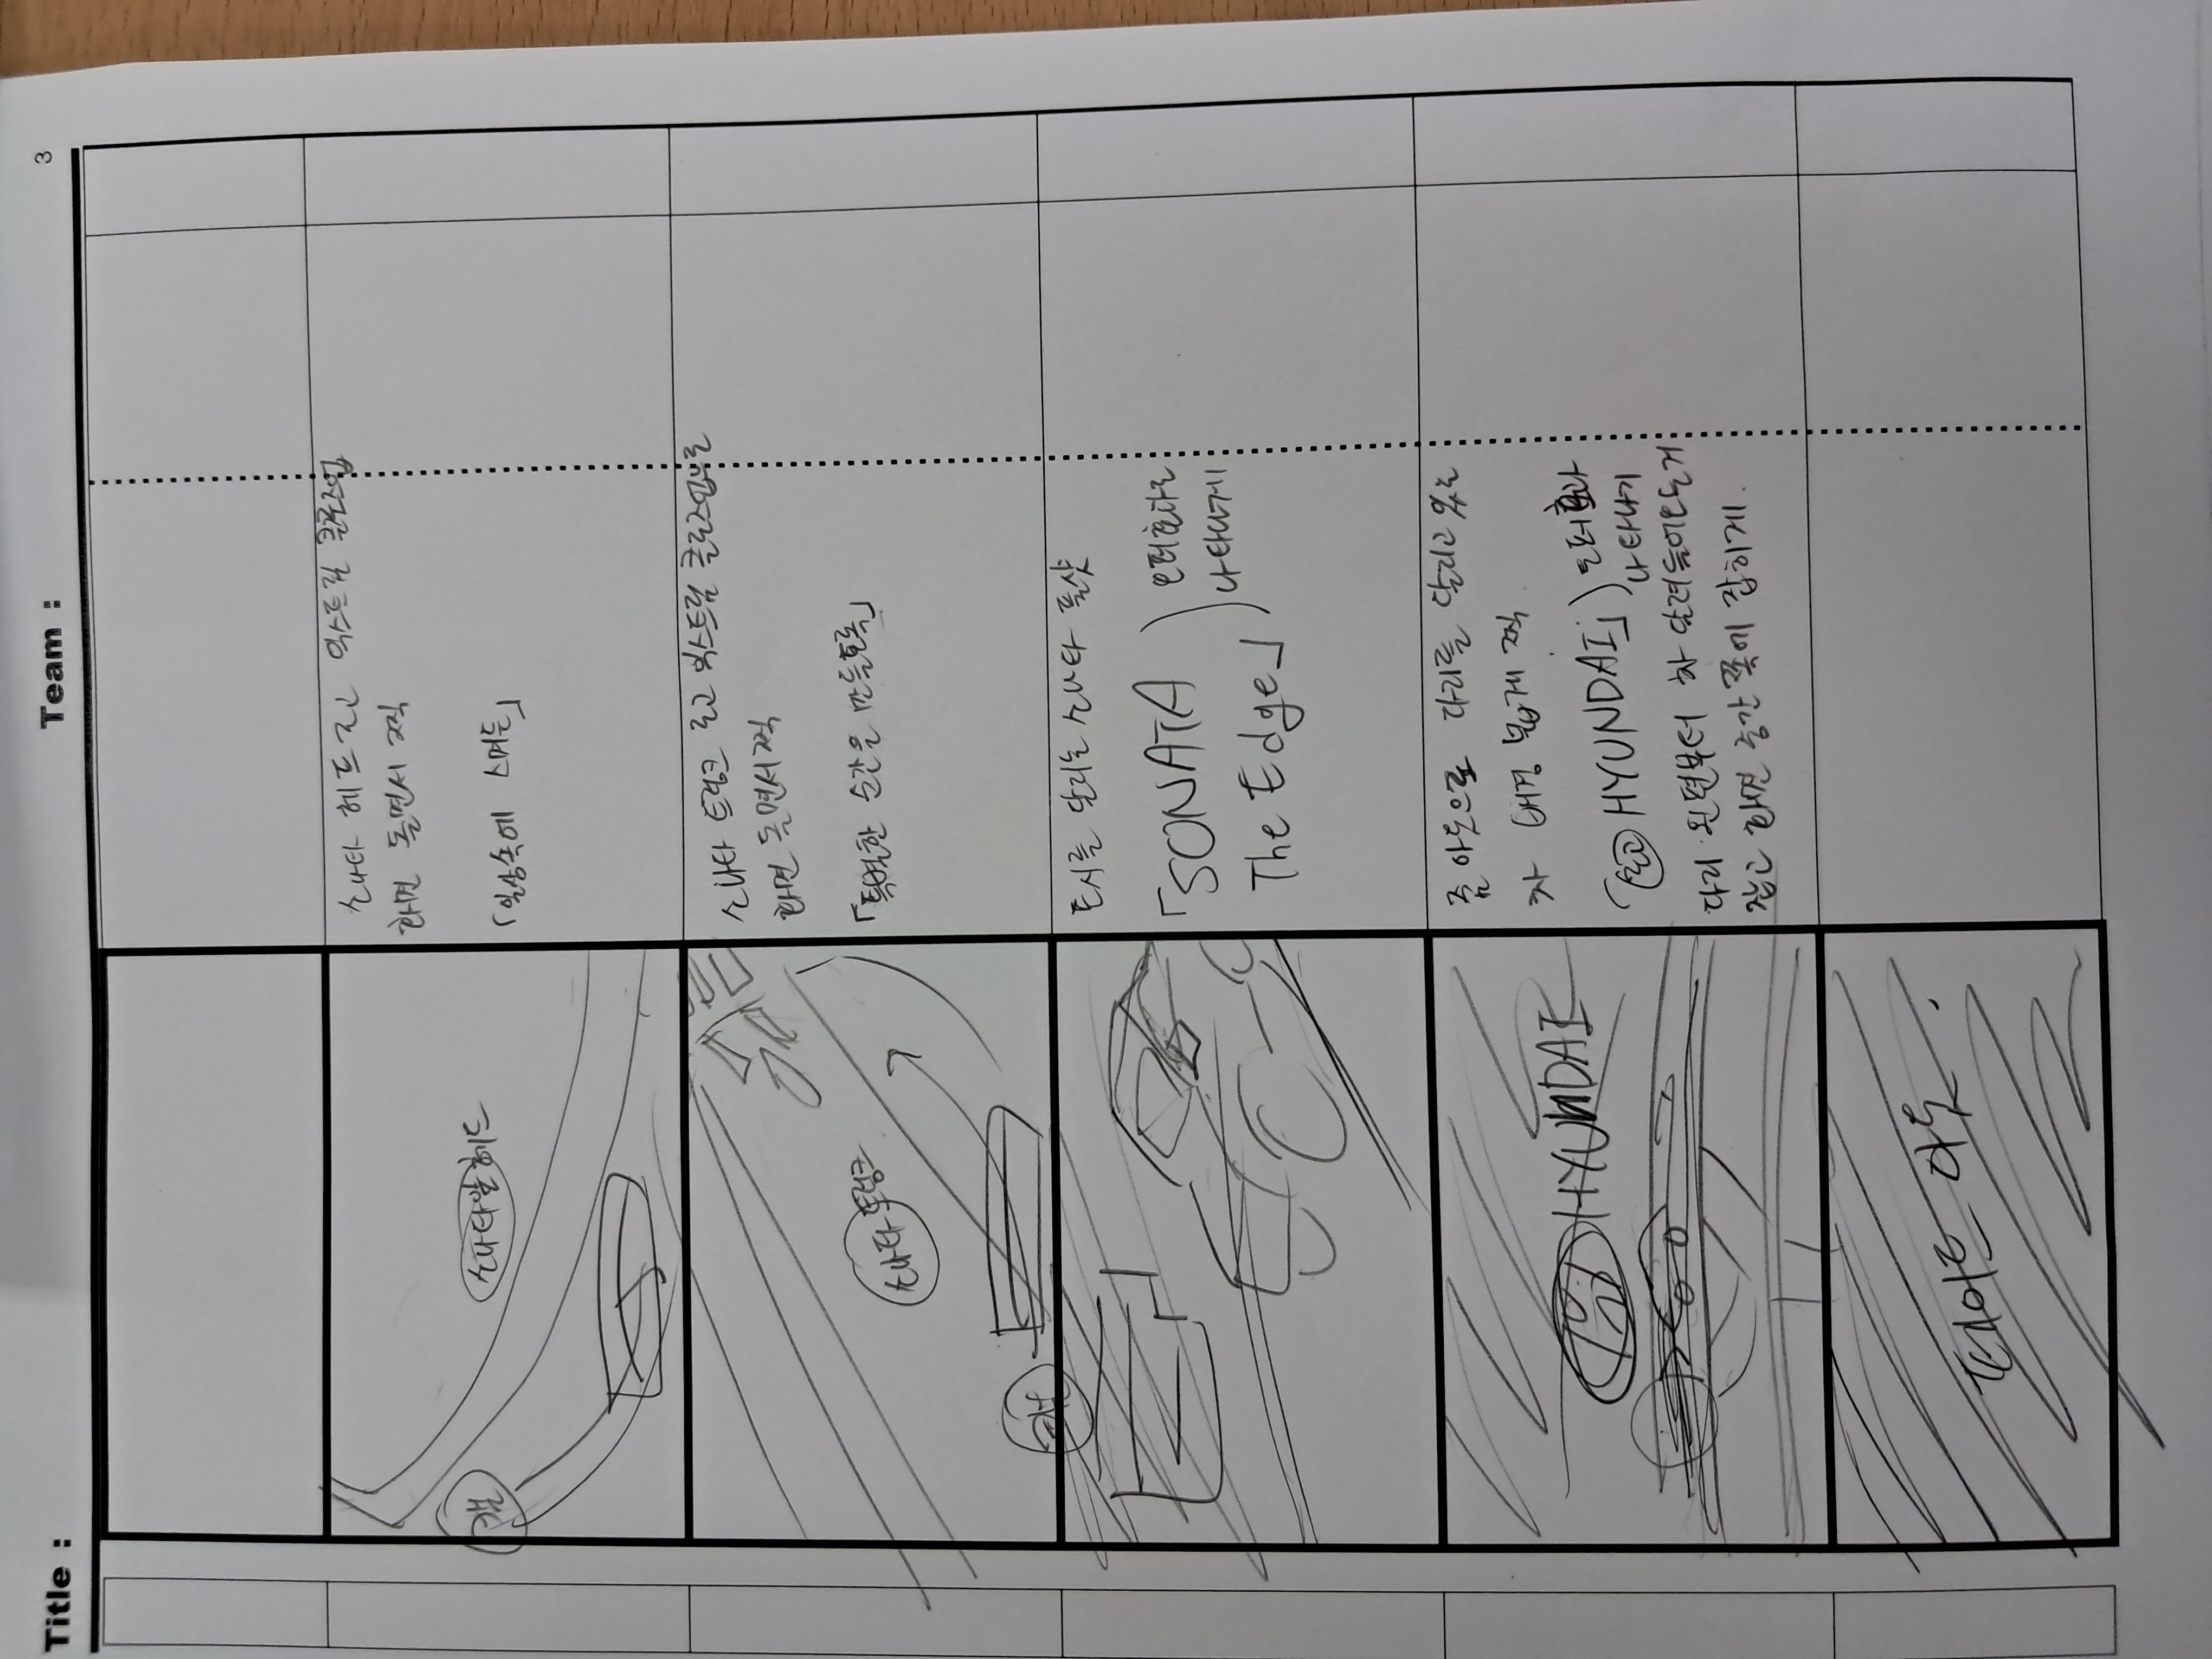 Title :
Team :
3
소나타 헤드 로고 익스트림 클로즈업
화면 돌면서 찍
「일상속에 스며든」
캠
소나타앞헤드
소나타 트렁크 로고 익스트림 클로즈업으로
화면 돌면서 찍
「특별한 순간을 만들도록」
소나타 트렁크
캠
도시를 달리는 소나타 풀샷
「SONATA
The Edge」
오퍼효과로
나타나게
HYUNDAI
줌 아웃으로 다리를 달리고 있는
차 배경 붋게 찍
「로고 HYUNDAI」
오퍼효과
나타나기
다리 왼편부터 차 달려들어오는거
잡고 화면 중간 쪽에 잡히게.
페이드 아웃.